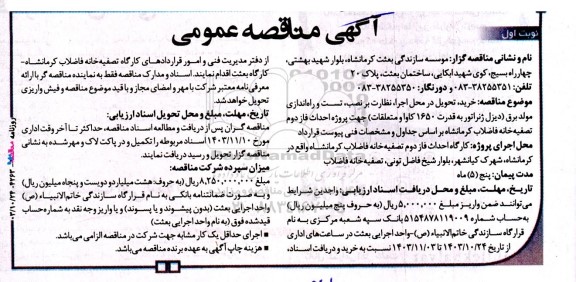 نوبت اول
آگهی مناقصه عمومی
نام و نشانی مناقصه گزار: موسسه سازندگی بعثت کرمانشاه، بلوار شهید بهشتی،
چهارراه بسیج، کوی شهید ابکایی، ساختمان بعثت، پلاک ۲۰
تلفن: ۳۸۲۵۵۳۵۱-۰۸۳ و دورنگار: ۳۸۲۵۵۳۵۰-۰۸۳
موضوع مناقصه: خرید، تحویل در محل اجرا، نظارت بر نصب، تست و راه‌اندازی
مولد برق (دیزل ژنراتور به قدرت 1650 کاوا و متعلقات) جهت پروژه احداث فاز دوم
تصفیه‌خانه فاضلاب کرمانشاه بر اساس جداول و مشخصات فنی پیوست قرارداد
محل اجرای پروژه: کارگاه احداث فاز دوم تصفیه‌خانه فاضلاب کرمانشاه واقع در
کرمانشاه، شهرک کیانشهر، بلوار شیخ فاضل تونی، تصفیه‌خانه فاضلاب
مدت پیمان: پنج (۵) ماه
تاریخ، مهلت، مبلغ و محل دریافت اسناد ارزیابی: واجدین شرایط
می‌توانند ضمن واریز مبلغ ۵,۰۰۰,۰۰۰ ریال (به حروف پنج میلیون ریال)
به حساب شماره ۵۱۵۴۸۷۸۱۱۹۰۰۹ بانک سپه شعبه مرکزی به نام
قرارگاه سازندگی خاتم‌الانبیاء (ص)-واحد اجرایی بعثت در ساعت‌های اداری
از تاریخ ۱۴۰۳/۱۰/۲۴ تا ۱۴۰۳/۱۱/۰۳ نسبت به خرید و دریافت اسناد،
از دفتر مدیریت فنی و امور قراردادهای کارگاه تصفیه‌خانه فاضلاب کرمانشاه-
کارگاه بعثت اقدام نمایند. اسناد و مدارک مناقصه فقط به نماینده مناقصه گر با ارائه
معرفی‌نامه معتبر شرکت با مهر و امضای مجاز و با قید موضوع مناقصه و فیش واریزی
تحویل خواهد شد.
تاریخ، مهلت، مبلغ و محل تحویل اسناد ارزیابی:
مناقصه گران پس از دریافت و مطالعه اسناد مناقصه، حداکثر تا آخر وقت اداری
مورخ ۱۴۰۳/۱۱/۱۰ اسناد مربوطه را تکمیل و در پاکت لاک و مهر شده به نشانی
مناقصه گزار تحویل و رسید دریافت نمایند.
میزان سپرده شرکت مناقصه:
مبلغ ۸,۲۵۰,۰۰۰,۰۰۰ ریال (به حروف: هشت میلیارد و دویست و پنجاه میلیون ریال)
به صورت ضمانتنامه بانکی به نام قرارگاه سازندگی خاتم‌الانبیاء (ص)
واحد اجرایی بعثت (بدون پیشوند و یا پسوند) و یا واریز وجه نقد به شماره حساب
قید شده فوق (به نام واحد اجرایی بعثت)
■ اجرای حداقل یک کار مشابه جهت شرکت در مناقصه الزامی می‌باشد.
■ هزینه چاپ آگهی به عهده برنده مناقصه می‌باشد.